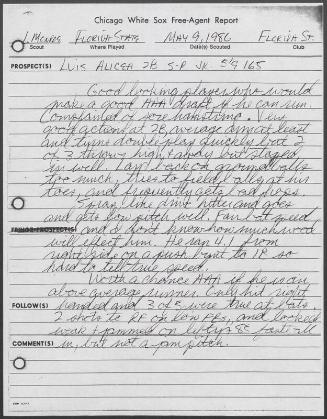 Chicago White Sox Free-Agent Report
J. McNair FLORIDA STATE MAY 9, 1986 FLORIDA ST.
Scout Where Played Date(s) Scouted Club
PROSPECT(S) LUIS ALICEA 2B S-R JR. 5'9 165
Good looking player who would
make a good AAA draft if he can run.
Complained of sore hamstring. Very
good actions at 2B, average arm at least
and turns double play quickly but 2
of 3 throws high, away but stayed
in well. Lays back on ground balls
too much, tries to field ball at his
toes, and frequently gets bad hops.
Spray line drive hitter and goes
and gets low pitch well. Fair bat speed
PRIOR PROSPECT(S) and I don't know how much wood
will effect him. He ran 4.1 from
right side on a push bunt to 1B so
hard to tell true speed.
Worth a chance AAA if he is an
above average runner. Only hit right
FOLLOW(S) handed and 3 of were true at bats.
2 shots to RF on low FBs, and looked
weak + jammed on lefty's 85 fastball
COMMENT(S) in, but not a jam pitch.